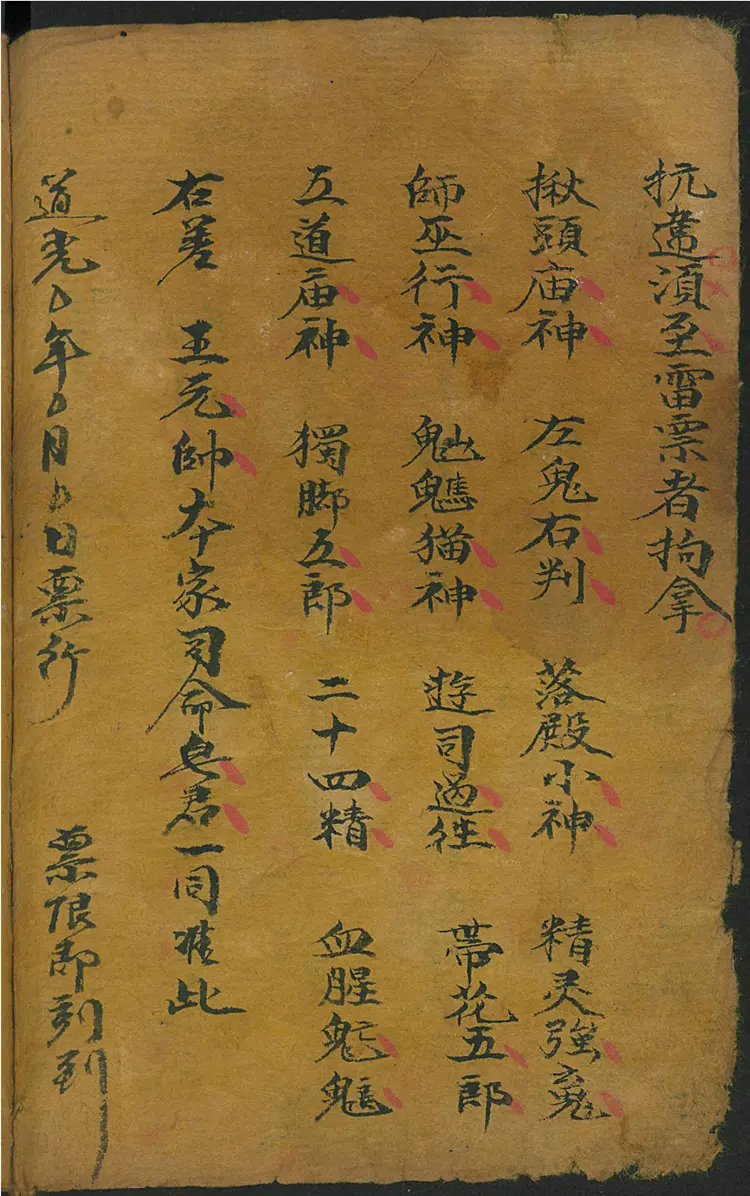 抗違須至雷票者拘拿
揪頭庙神 左鬼右判 落殿小神 精灵強鬼
師巫行神 魈猫神 遊司過往 帶花五郎
五道庙神 獨脚五郎 二十四精 血腥
右差 王元帥本家司命皂君一同准此
道光 年 月 日票行 票限即刻到